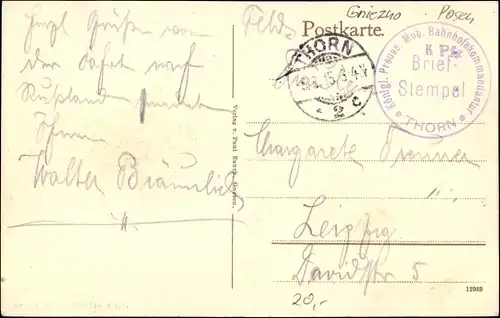 Herzl. Grüße von
der Fahrt nach
Rußland sendet
Ihnen
Walter Bräunlich
Feld-
Postkarte.
Gniezno Posen
THORN
* 2 c
Königl. Preuss. Mob. Bahnhofskommandantur
K P
Brief-
Stempel
* THORN *
Margarete
Leipzig
Davidstr 5
20,-
Verlag v. Paul
12985